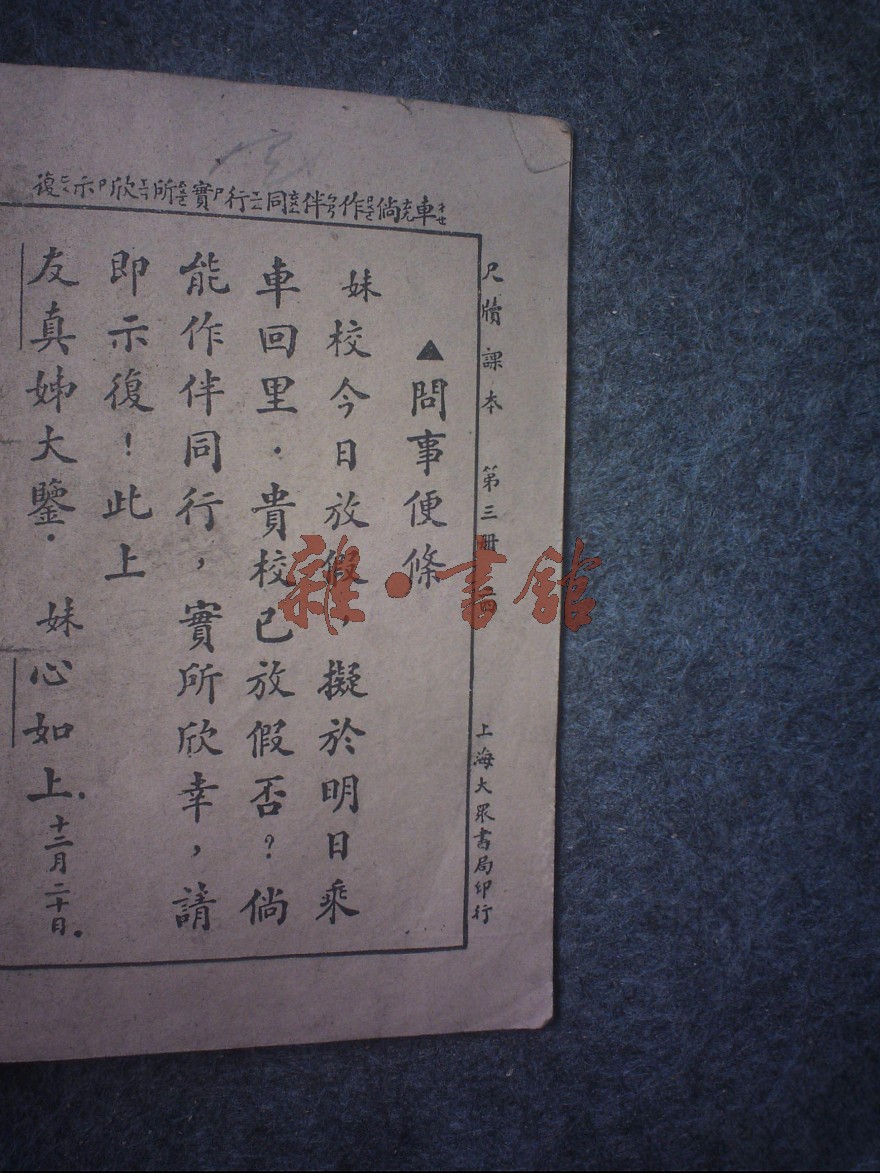 車倘作伴同行實所欣示復
尺牘課本 第三冊
上海大眾書局印行
▲問事便條
妹校今日放假，擬於明日乘
車回里．貴校已放假否？倘
能作伴同行，實所欣幸，請
即示復！此上
友真姊大鑒．
妹心如上．十二月二十日．
雜·書館